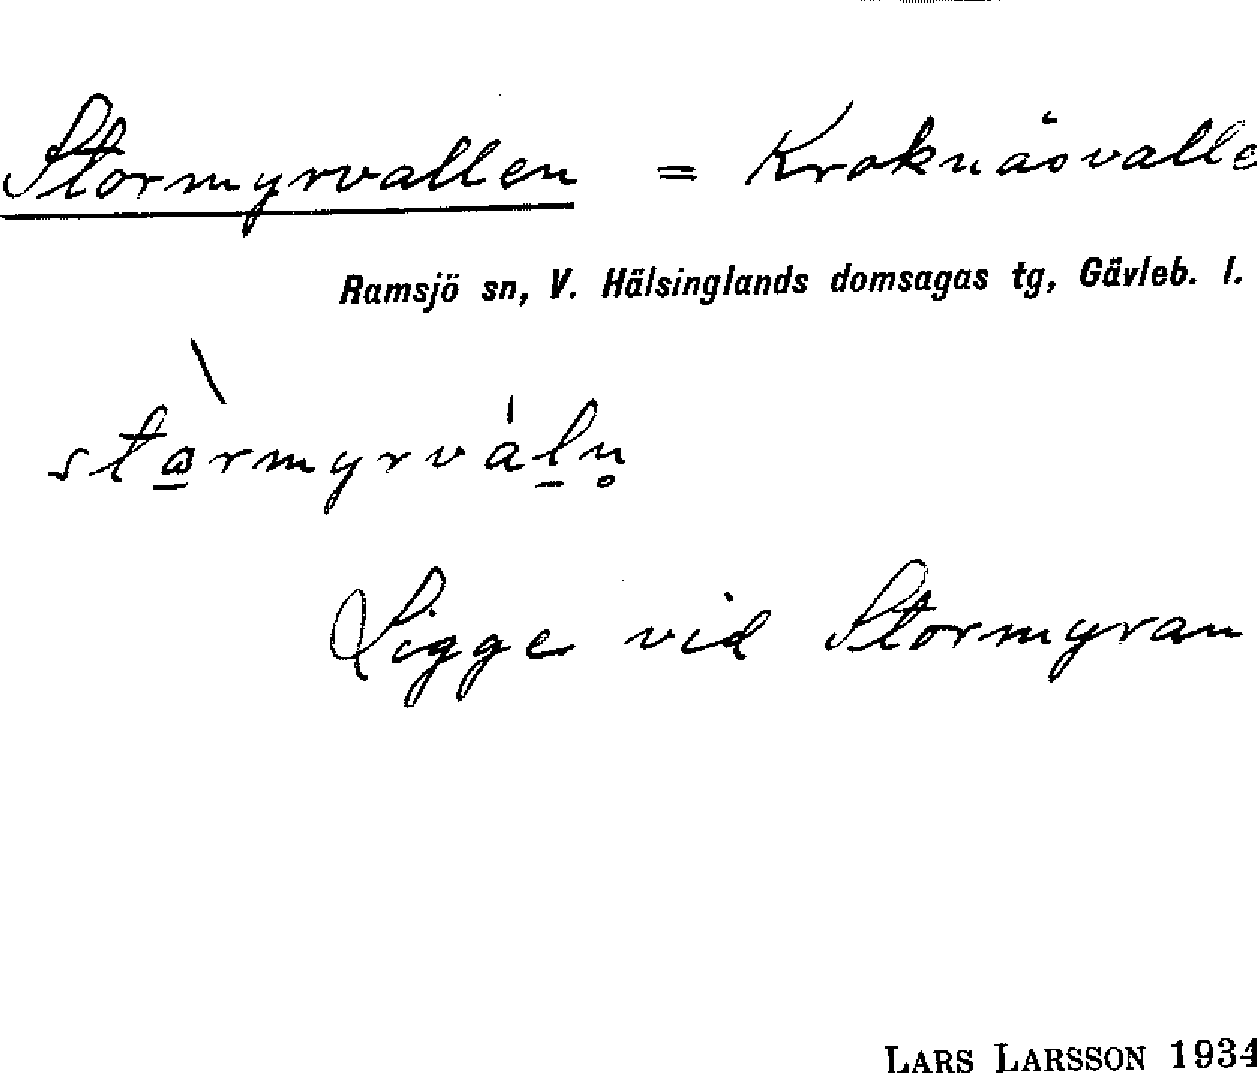 Stormyrvallen = Kroknäsvalle
Ramsjö sn, V. Hälsinglands domsagas tg, Gävleb. l.
starmyrvaln̥
Ligge vid Stormyran
LARS LARSSON 1934